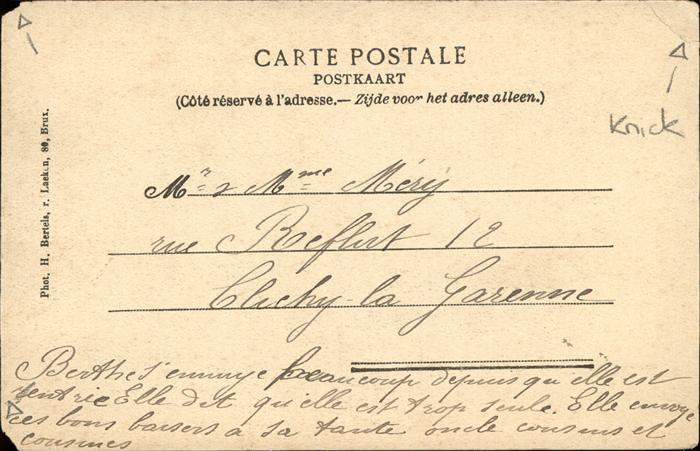 CARTE POSTALE
POSTKAART
(Côté réservé à l'adresse.— Zijde voor het adres alleen.)
Knick
Phot. H. Bertels, r. Laeken, 80, Brux.
Mr & Mme Méry
rue Reflut 12
Clichy la Garenne
Berthe s'ennuye beaucoup depuis qu'elle est
rentrée Elle dit qu'elle est trop seule. Elle envoye
ces bons baisers a sa tante oncle cousins et
cousines